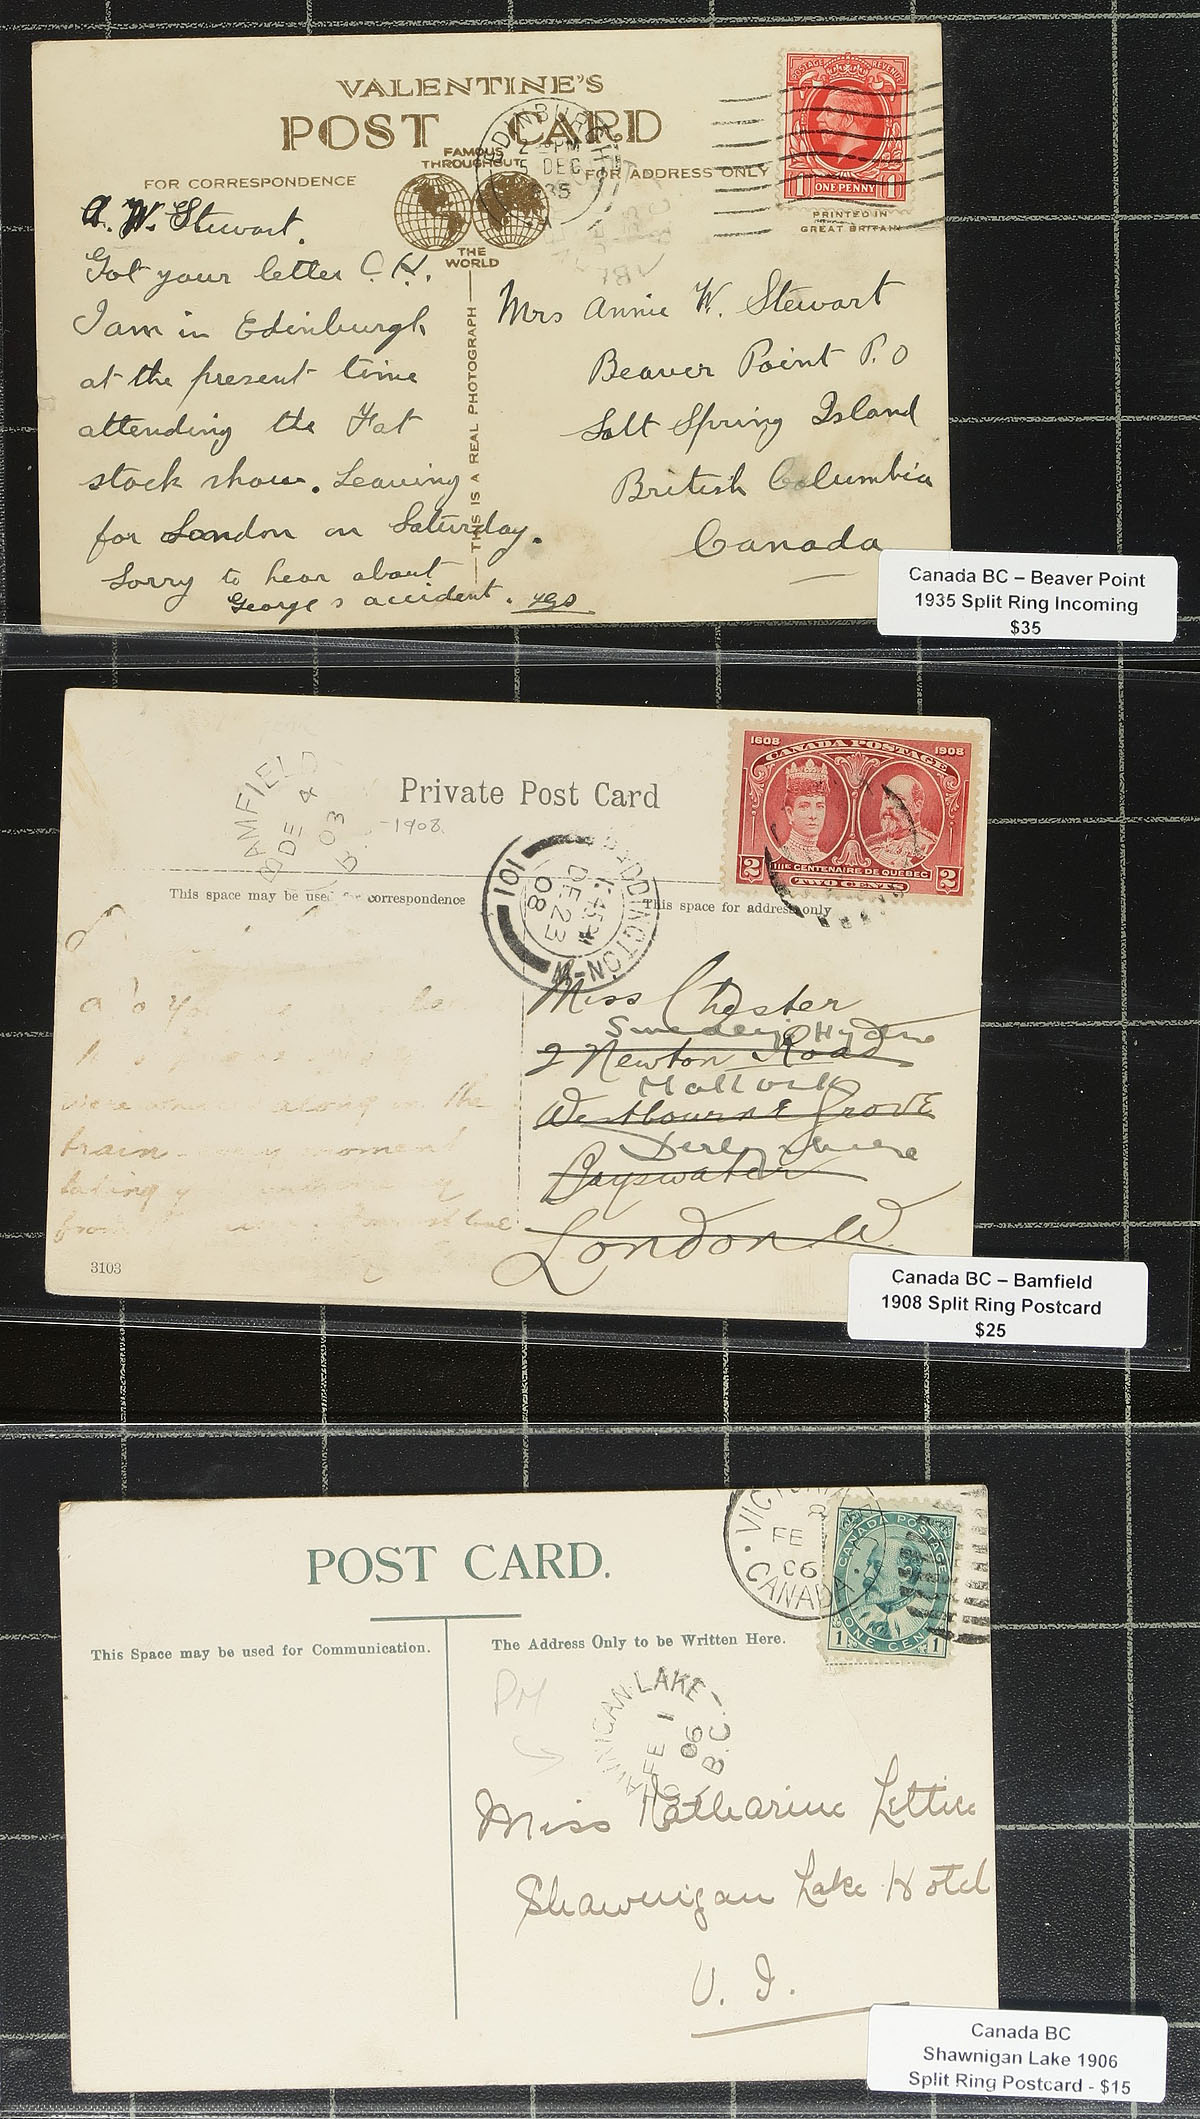 VALENTINE'S
POST CARD
FAMOUS
THROUGHOUT
THE
WORLD
FOR CORRESPONDENCE
FOR ADDRESS ONLY
EDINBURGH
DEC
POSTAGE REVENUE
1 ONE PENNY 1
PRINTED IN
GREAT BRITAIN
THIS IS A REAL PHOTOGRAPH
A. W. Stewart.
Got your letter O.K.
I am in Edinburgh
at the present time
attending the Fat
stock show. Leaving
for London on Saturday.
Sorry to hear about
George's accident.
Mrs Annie W. Stewart
Beaver Point P.O
Salt Spring Island
British Columbia
Canada
Canada BC – Beaver Point
1935 Split Ring Incoming
$35
BAMFIELD
DE 4
03
B.
Private Post Card
-1908.
1608 1908
CANADA POSTAGE
IIIE CENTENAIRE DE QUÉBEC
2 TWO CENTS 2
101
PADDINGTON-W
1.45
DE 23
08
This space may be used for correspondence
This space for address only
along the
train moment
Miss Chester
2 Newton Road
Westbourne Grove
Derbyshire
Bayswater
London W.
3103
Canada BC – Bamfield
1908 Split Ring Postcard
$25
VICTORIA
FE
06
CANADA
CANADA POSTAGE
1 ONE CENT 1
POST CARD.
This Space may be used for Communication.
The Address Only to be Written Here.
PM
AWNIGAN LAKE
FE 1
06
B.C.
Miss Katharine Lettice
Shawnigan Lake Hotel
V. I.
Canada BC
Shawnigan Lake 1906
Split Ring Postcard - $15